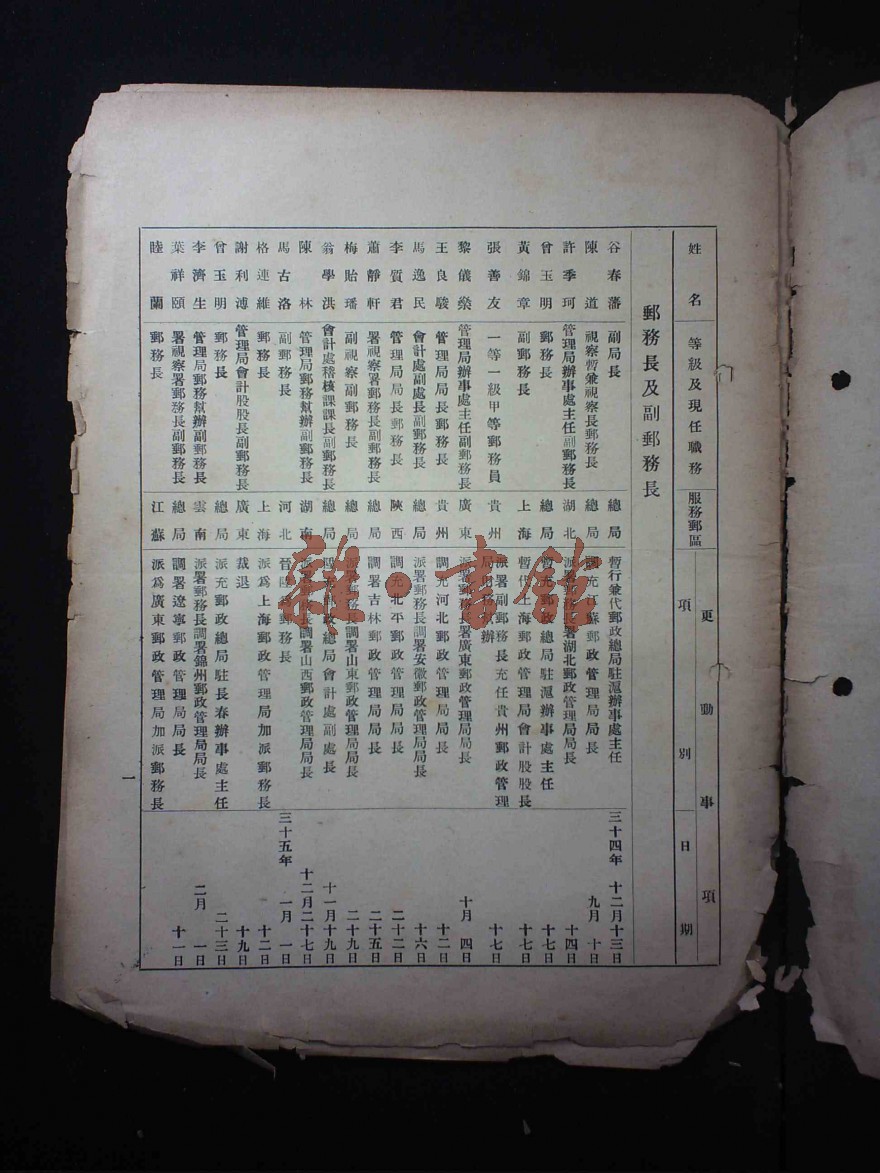 姓名 等級及現任職務 服務郵區 更動事項
項別 日期
郵務長及副郵務長
谷春藩 副局長 總局 暫行兼代郵政總局駐滬辦事處主任 三十四年十二月十三日
陳道 視察暫兼視察長郵務長 總局 調充江蘇郵政管理局局長 九月十日
許季珂 管理局辦事處主任副郵務長 湖北 派署郵務長署湖北郵政管理局局長 十四日
曾玉明 郵務長 總局 暫充郵政總局駐滬辦事處主任 十七日
黃錦章 副郵務長 上海 暫代上海郵政管理局會計股股長 十七日
張善友 一等一級甲等郵務員 貴州 派署副郵務長充任貴州郵政管理
局 辦 十七日
黎儀燊 管理局辦事處主任副郵務長 廣東 派署郵務長署廣東郵政管理局局長 十月四日
王良駿 管理局局長郵務長 貴州 調充河北郵政管理局局長 十二日
馬逸民 會計處副處長副郵務長 總局 派署郵務長調署安徽郵政管理局局長 十六日
李質君 管理局局長郵務長 陝西 調充北平郵政管理局局長 二十二日
蕭靜軒 署視察署郵務長副郵務長 總局 調署吉林郵政管理局局長 二十五日
梅貽璠 副視察副郵務長 總局 派署郵務長調署山東郵政管理局局長 二十九日
翁學洪 會計處稽核課課長副郵務長 總局 充郵政總局會計處副處長 十一月十九日
陳林 管理局郵務幫辦副郵務長 湖南 派署郵務長調署山西郵政管理局局長 十二月二十七日
馬古洛 副郵務長 河北 晉陞爲郵務長 三十五年一月一日
格連維 郵務長 上海 派爲上海郵政管理局加派郵務長 十二日
謝利溥 管理局會計股股長副郵務長 廣東 裁退 十九日
曾玉明 郵務長 總局 派充郵政總局駐長春辦事處主任 二十三日
李濟生 管理局郵務幫辦副郵務長 雲南 派署郵務長調署錦州郵政管理局局長 二月一日
葉祥頤 署視察署郵務長副郵務長 總局 調署遼寧郵政管理局局長 十一日
睦蘭 郵務長 江蘇 派爲廣東郵政管理局加派郵務長
一
雜·書館